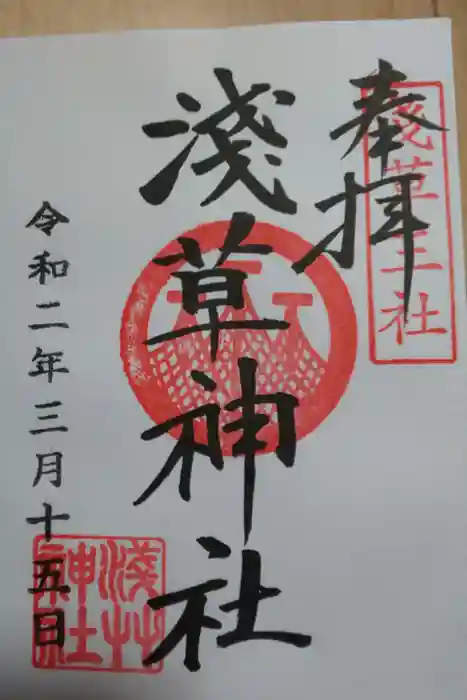 奉拝
浅草三社
淺草神社
令和二年三月十五日
淺草神社